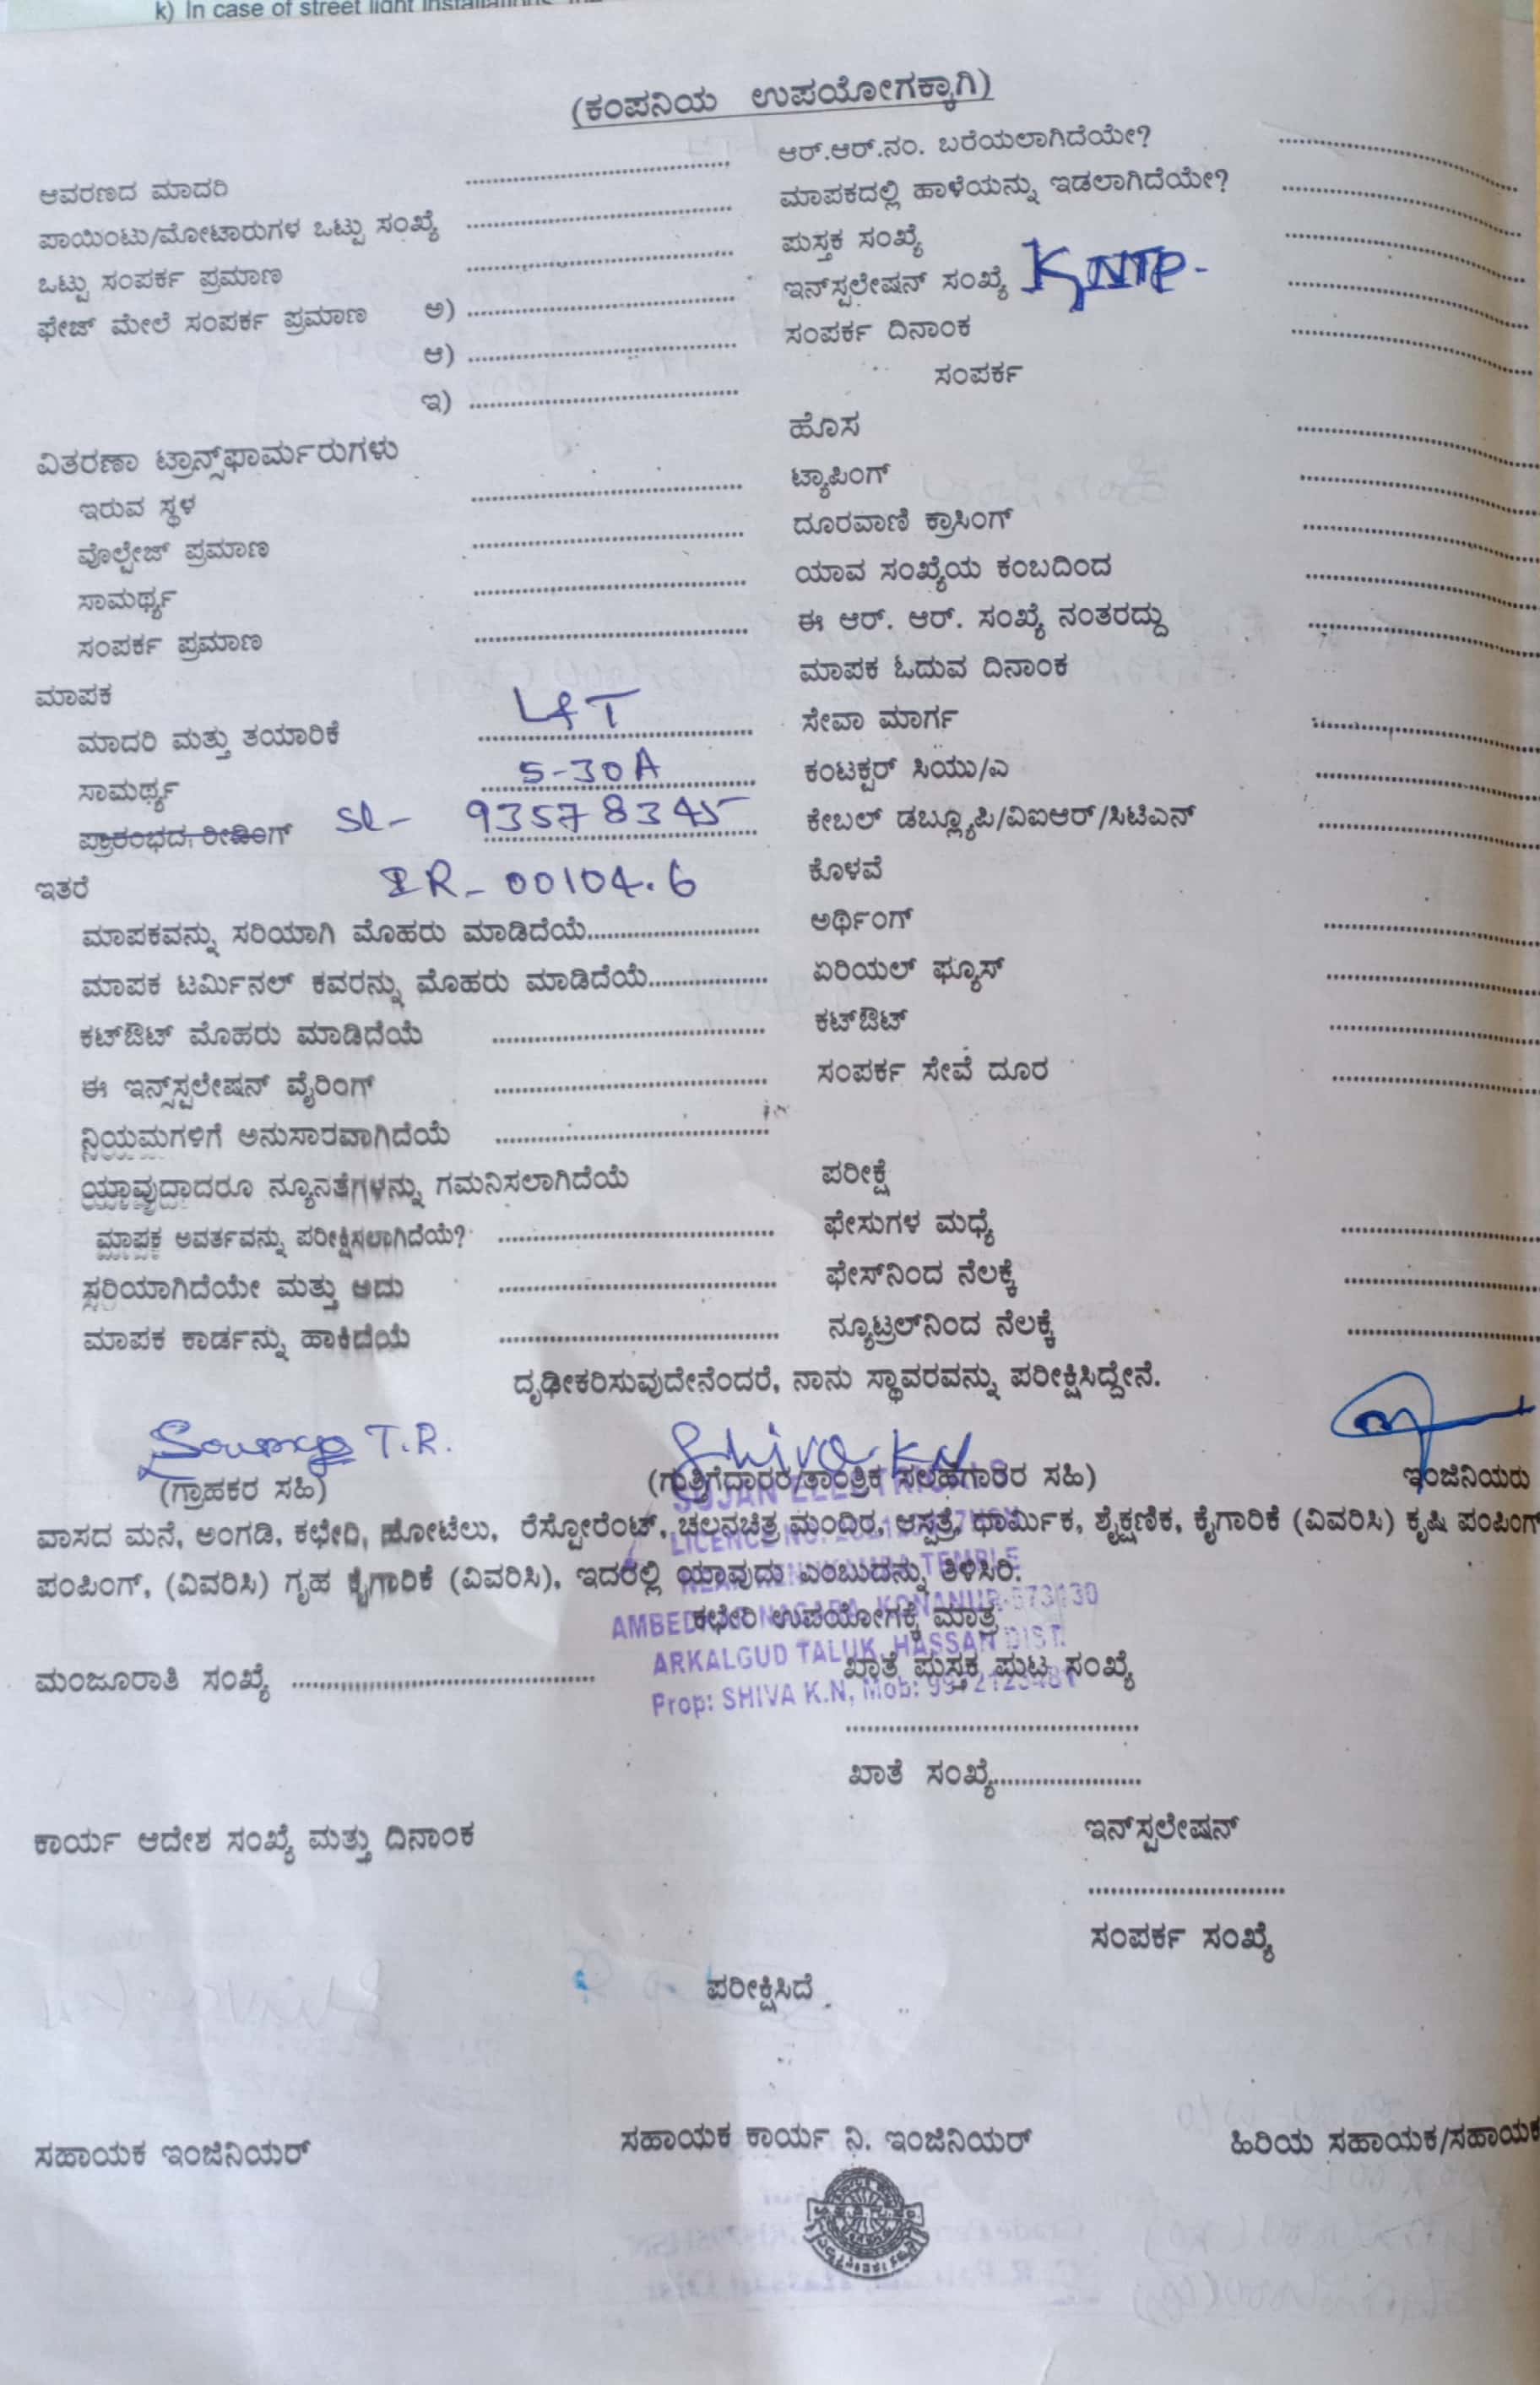 k) In case of street light installations, the
(ಕಂಪನಿಯ ಉಪಯೋಗಕ್ಕಾಗಿ)
ಆವರಣದ ಮಾದರಿ ....................
ಪಾಯಿಂಟು/ಮೋಟಾರುಗಳ ಒಟ್ಟು ಸಂಖ್ಯೆ ....................
ಒಟ್ಟು ಸಂಪರ್ಕ ಪ್ರಮಾಣ ....................
ಫೇಜ್ ಮೇಲೆ ಸಂಪರ್ಕ ಪ್ರಮಾಣ ಅ) ....................
ಆ) ....................
ಇ) ....................
ವಿತರಣಾ ಟ್ರಾನ್ಸ್‌ಫಾರ್ಮರುಗಳು
ಇರುವ ಸ್ಥಳ ....................
ವೊಲ್ಟೇಜ್ ಪ್ರಮಾಣ ....................
ಸಾಮರ್ಥ್ಯ ....................
ಸಂಪರ್ಕ ಪ್ರಮಾಣ ....................
ಮಾಪಕ
ಮಾದರಿ ಮತ್ತು ತಯಾರಿಕೆ L&T
ಸಾಮರ್ಥ್ಯ 5-30A
ಪ್ರಾರಂಭದ ರೀಡಿಂಗ್ Sl- 93578345
ಇತರೆ IR- 00104.6
ಮಾಪಕವನ್ನು ಸರಿಯಾಗಿ ಮೊಹರು ಮಾಡಿದೆಯೆ....................
ಮಾಪಕ ಟರ್ಮಿನಲ್ ಕವರನ್ನು ಮೊಹರು ಮಾಡಿದೆಯೆ..................
ಕಟ್‌ಔಟ್ ಮೊಹರು ಮಾಡಿದೆಯೆ ....................
ಈ ಇನ್ಸ್‌ಸ್ಟಲೇಷನ್ ವೈರಿಂಗ್ ....................
ನಿಯಮಗಳಿಗೆ ಅನುಸಾರವಾಗಿದೆಯೆ ....................
ಯಾವುದಾದರೂ ನ್ಯೂನತೆಗಳನ್ನು ಗಮನಿಸಲಾಗಿದೆಯೆ
ಮಾಪಕ ಅವರ್ತವನ್ನು ಪರೀಕ್ಷಿಸಲಾಗಿದೆಯೆ? ....................
ಸರಿಯಾಗಿದೆಯೇ ಮತ್ತು ಅದು ....................
ಮಾಪಕ ಕಾರ್ಡನ್ನು ಹಾಕಿದೆಯೆ ....................
ಆರ್.ಆರ್.ನಂ. ಬರೆಯಲಾಗಿದೆಯೇ? ....................
ಮಾಪಕದಲ್ಲಿ ಹಾಳೆಯನ್ನು ಇಡಲಾಗಿದೆಯೇ? ....................
ಪುಸ್ತಕ ಸಂಖ್ಯೆ ....................
ಇನ್‌ಸ್ಟಲೇಷನ್ ಸಂಖ್ಯೆ KNTP- ....................
ಸಂಪರ್ಕ ದಿನಾಂಕ ....................
ಸಂಪರ್ಕ
ಹೊಸ ....................
ಟ್ಯಾಪಿಂಗ್ ....................
ದೂರವಾಣಿ ಕ್ರಾಸಿಂಗ್ ....................
ಯಾವ ಸಂಖ್ಯೆಯ ಕಂಬದಿಂದ ....................
ಈ ಆರ್. ಆರ್. ಸಂಖ್ಯೆ ನಂತರದ್ದು ....................
ಮಾಪಕ ಓದುವ ದಿನಾಂಕ
ಸೇವಾ ಮಾರ್ಗ ....................
ಕಂಟಕ್ಟರ್ ಸಿಯು/ಎ ....................
ಕೇಬಲ್ ಡಬ್ಲ್ಯೂಪಿ/ವಿಐಆರ್/ಸಿಟಿಎನ್ ....................
ಕೊಳವೆ
ಅರ್ಥಿಂಗ್ ....................
ಏರಿಯಲ್ ಫ್ಯೂಸ್ ....................
ಕಟ್‌ಔಟ್ ....................
ಸಂಪರ್ಕ ಸೇವೆ ದೂರ ....................
ಪರೀಕ್ಷೆ
ಫೇಸುಗಳ ಮಧ್ಯೆ ....................
ಫೇಸ್‌ನಿಂದ ನೆಲಕ್ಕೆ ....................
ನ್ಯೂಟ್ರಲ್‌ನಿಂದ ನೆಲಕ್ಕೆ ....................
ದೃಢೀಕರಿಸುವುದೇನೆಂದರೆ, ನಾನು ಸ್ಥಾವರವನ್ನು ಪರೀಕ್ಷಿಸಿದ್ದೇನೆ.
Sowmya T.R. Shiva K N
(ಗ್ರಾಹಕರ ಸಹಿ) (ಗುತ್ತಿಗೆದಾರರ/ತಾಂತ್ರಿಕ ಸಲಹೆಗಾರರ ಸಹಿ) ಇಂಜಿನಿಯರು
ವಾಸದ ಮನೆ, ಅಂಗಡಿ, ಕಛೇರಿ, ಹೋಟೆಲು, ರೆಸ್ಟೋರೆಂಟ್, ಚಲನಚಿತ್ರ ಮಂದಿರ, ಆಸ್ಪತ್ರೆ, ಧಾರ್ಮಿಕ, ಶೈಕ್ಷಣಿಕ, ಕೈಗಾರಿಕೆ (ವಿವರಿಸಿ) ಕೃಷಿ ಪಂಪಿಂಗ್
ಪಂಪಿಂಗ್, (ವಿವರಿಸಿ) ಗೃಹ ಕೈಗಾರಿಕೆ (ವಿವರಿಸಿ), ಇದರಲ್ಲಿ ಯಾವುದು ಎಂಬುದನ್ನು ತಿಳಿಸಿರಿ.
ಕಛೇರಿ ಉಪಯೋಗಕ್ಕೆ ಮಾತ್ರ
SUJAN ELECTRICALS
LICENCE NO.
TEMPLE
AMBEDKAR NAGARA, KONANUR-573130
ARKALGUD TALUK, HASSAN DIST.
Prop: SHIVA K.N, Mob:
ಮಂಜೂರಾತಿ ಸಂಖ್ಯೆ .................... ಖಾತೆ ಪುಸ್ತಕ ಪುಟ ಸಂಖ್ಯೆ
....................
ಖಾತೆ ಸಂಖ್ಯೆ....................
ಕಾರ್ಯ ಆದೇಶ ಸಂಖ್ಯೆ ಮತ್ತು ದಿನಾಂಕ ಇನ್‌ಸ್ಟಲೇಷನ್
....................
ಸಂಪರ್ಕ ಸಂಖ್ಯೆ
ಪರೀಕ್ಷಿಸಿದೆ
ಸಹಾಯಕ ಇಂಜಿನಿಯರ್ ಸಹಾಯಕ ಕಾರ್ಯ ನಿ. ಇಂಜಿನಿಯರ್ ಹಿರಿಯ ಸಹಾಯಕ/ಸಹಾಯಕ